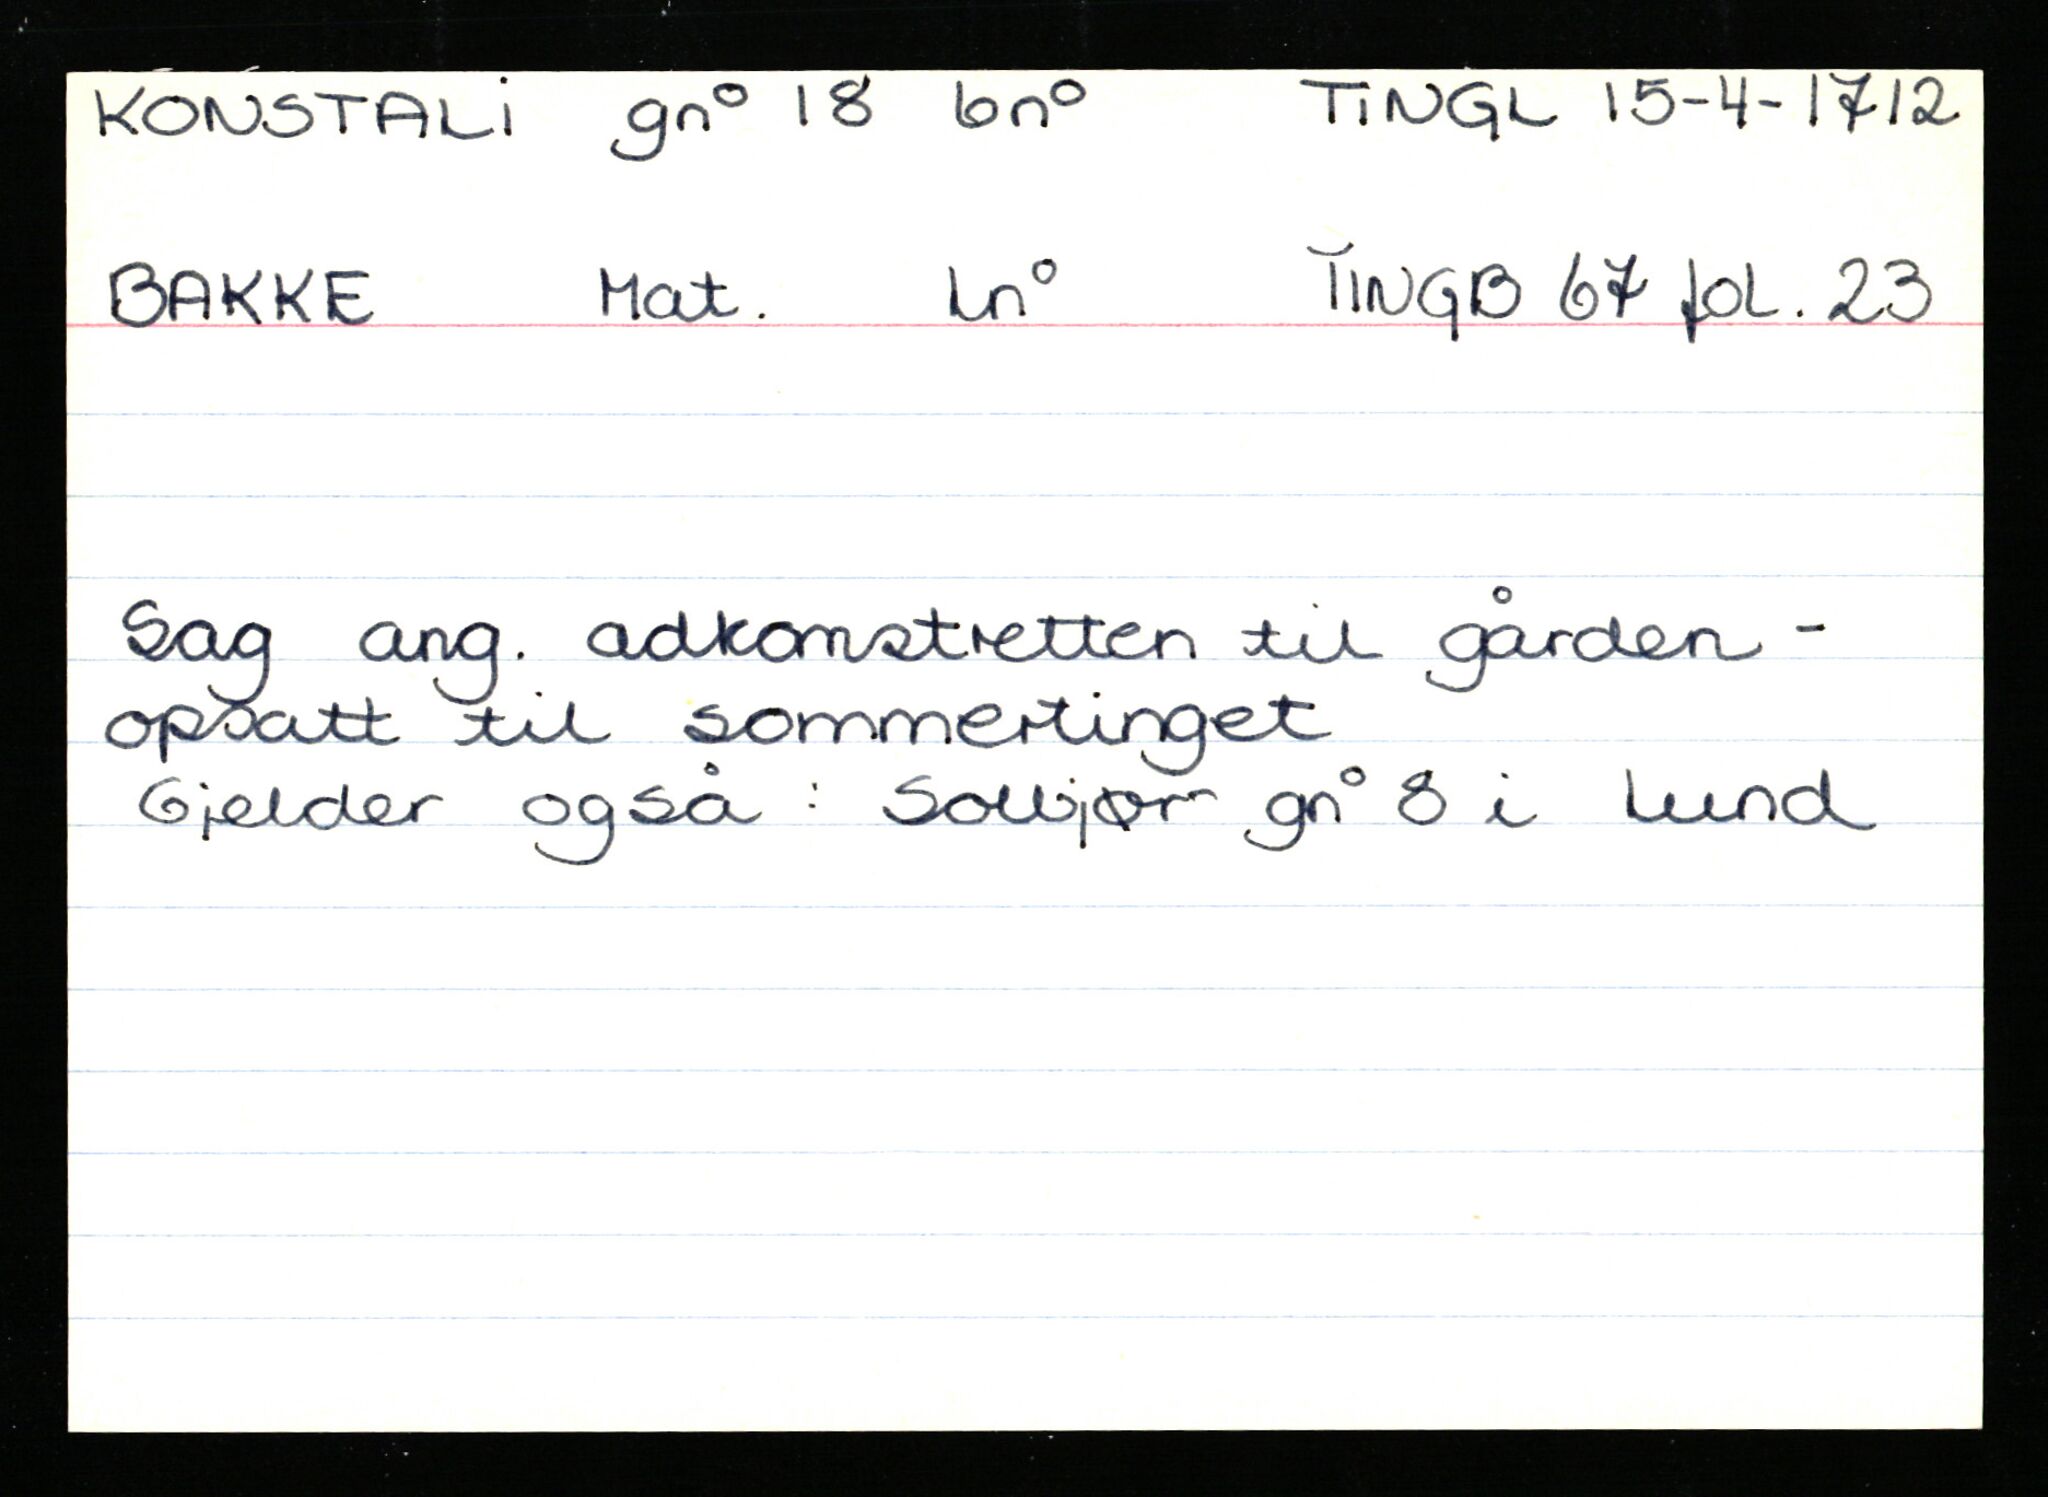 KONSTALi gnº 18 bnº TiNGL 15-4-1712
BAKKE Mat. Lnº TINGB 67 fol. 23
Sag ang. adkomstretten til gården -
opsatt til sommertinget
Gjelder også : Solbjør gnº 8 i Lund